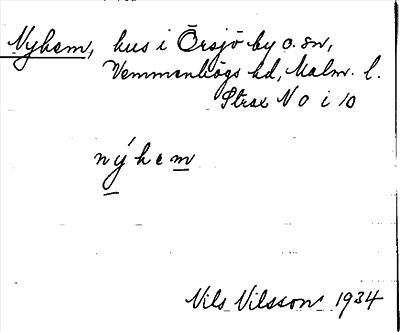 Nyhem, hus i Örsjö by o. sn,
Vemmenhögs hd, Malm. l.
Strax N O i 10
nýhem
Nils Nilsson 1934